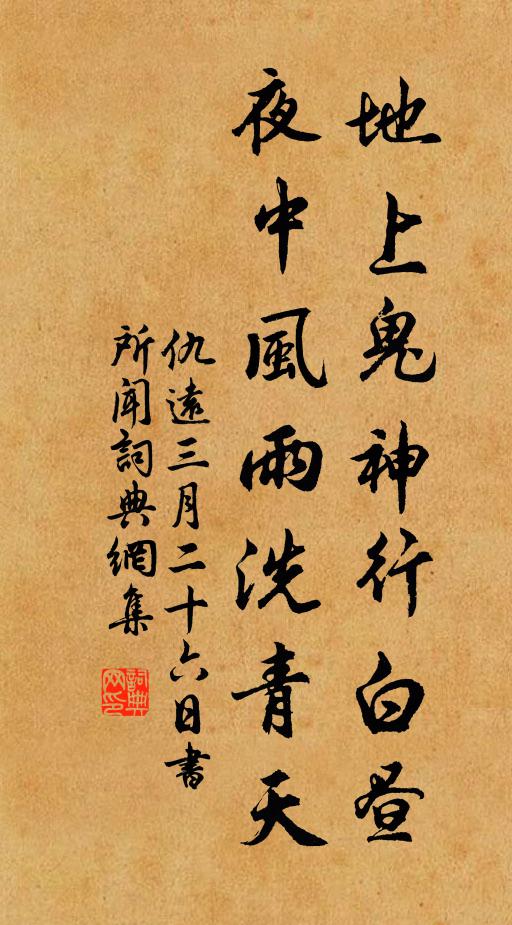 地上鬼神行白昼
夜中風雨洗青天
仇遠三月二十六日書
所聞詞典網集
詞典
网印